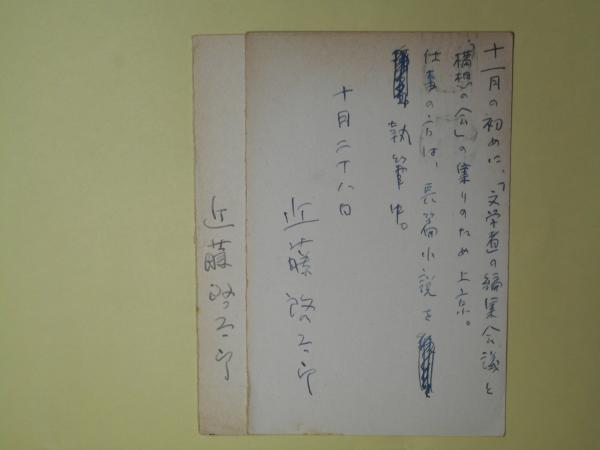 十一月の初めに、「文学者の編集会議と
「構想の会」の集りのため上京。
仕事の方は、長篇小説を
執筆中。
十月二十八日
近藤啓太郎
近藤啓太郎